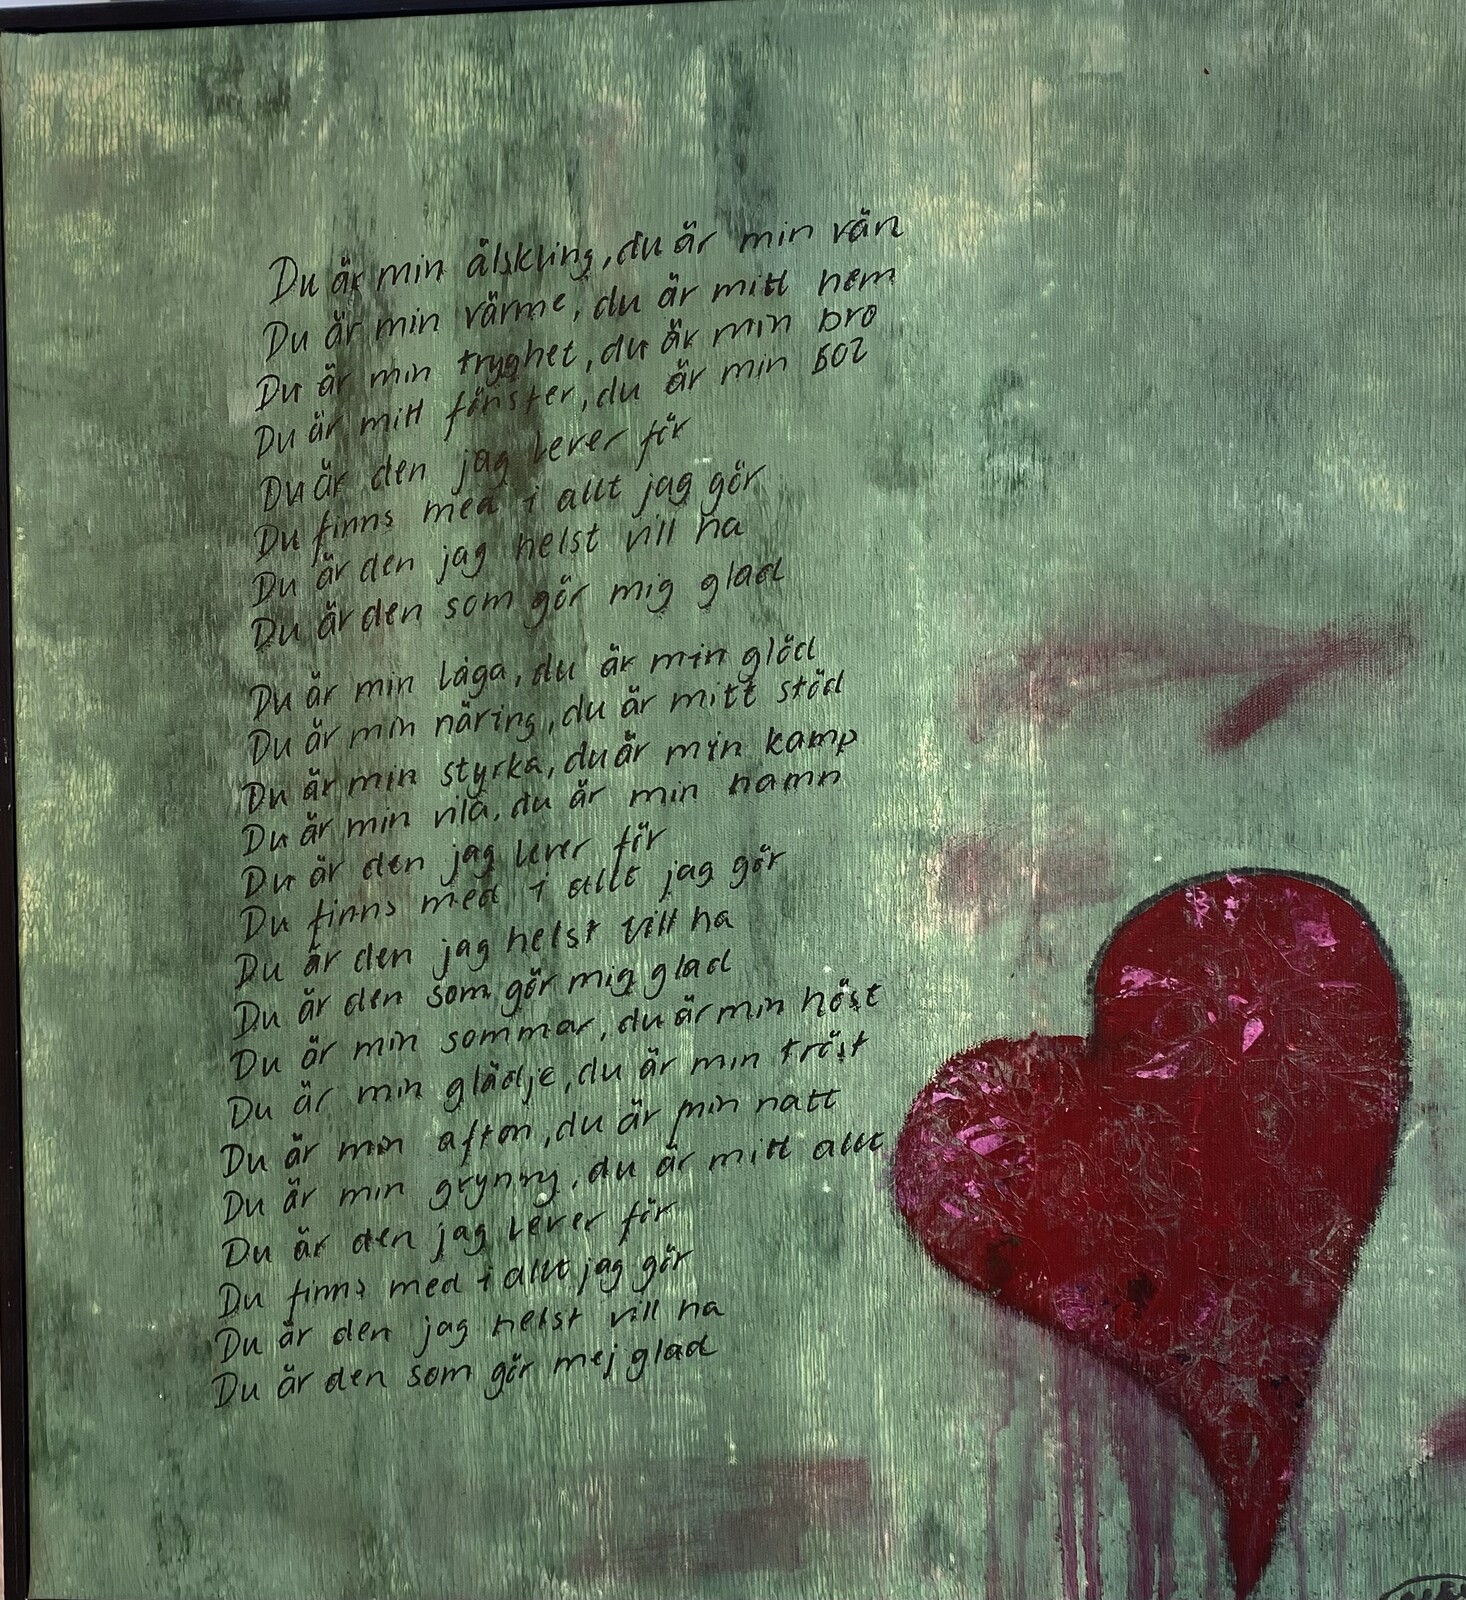 Du är min älskling, du är min vän
Du är min värme, du är mitt hem
Du är min trygghet, du är min bro
Du är mitt fönster, du är min sol
Du är den jag lever för
Du finns med i allt jag gör
Du är den jag helst vill ha
Du är den som gör mig glad
Du är min låga, du är min glöd
Du är min näring, du är mitt stöd
Du är min styrka, du är min kamp
Du är min vila, du är min hamn
Du är den jag lever för
Du finns med i allt jag gör
Du är den jag helst vill ha
Du är den som gör mig glad
Du är min sommar, du är min höst
Du är min glädje, du är min tröst
Du är min afton, du är min natt
Du är min gryning, du är mitt allt
Du är den jag lever för
Du finns med i allt jag gör
Du är den jag helst vill ha
Du är den som gör mej glad